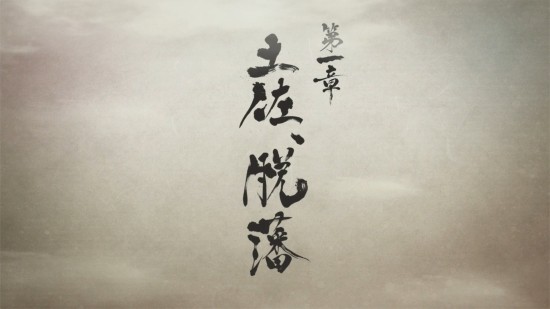 第一章
土佐、脱藩